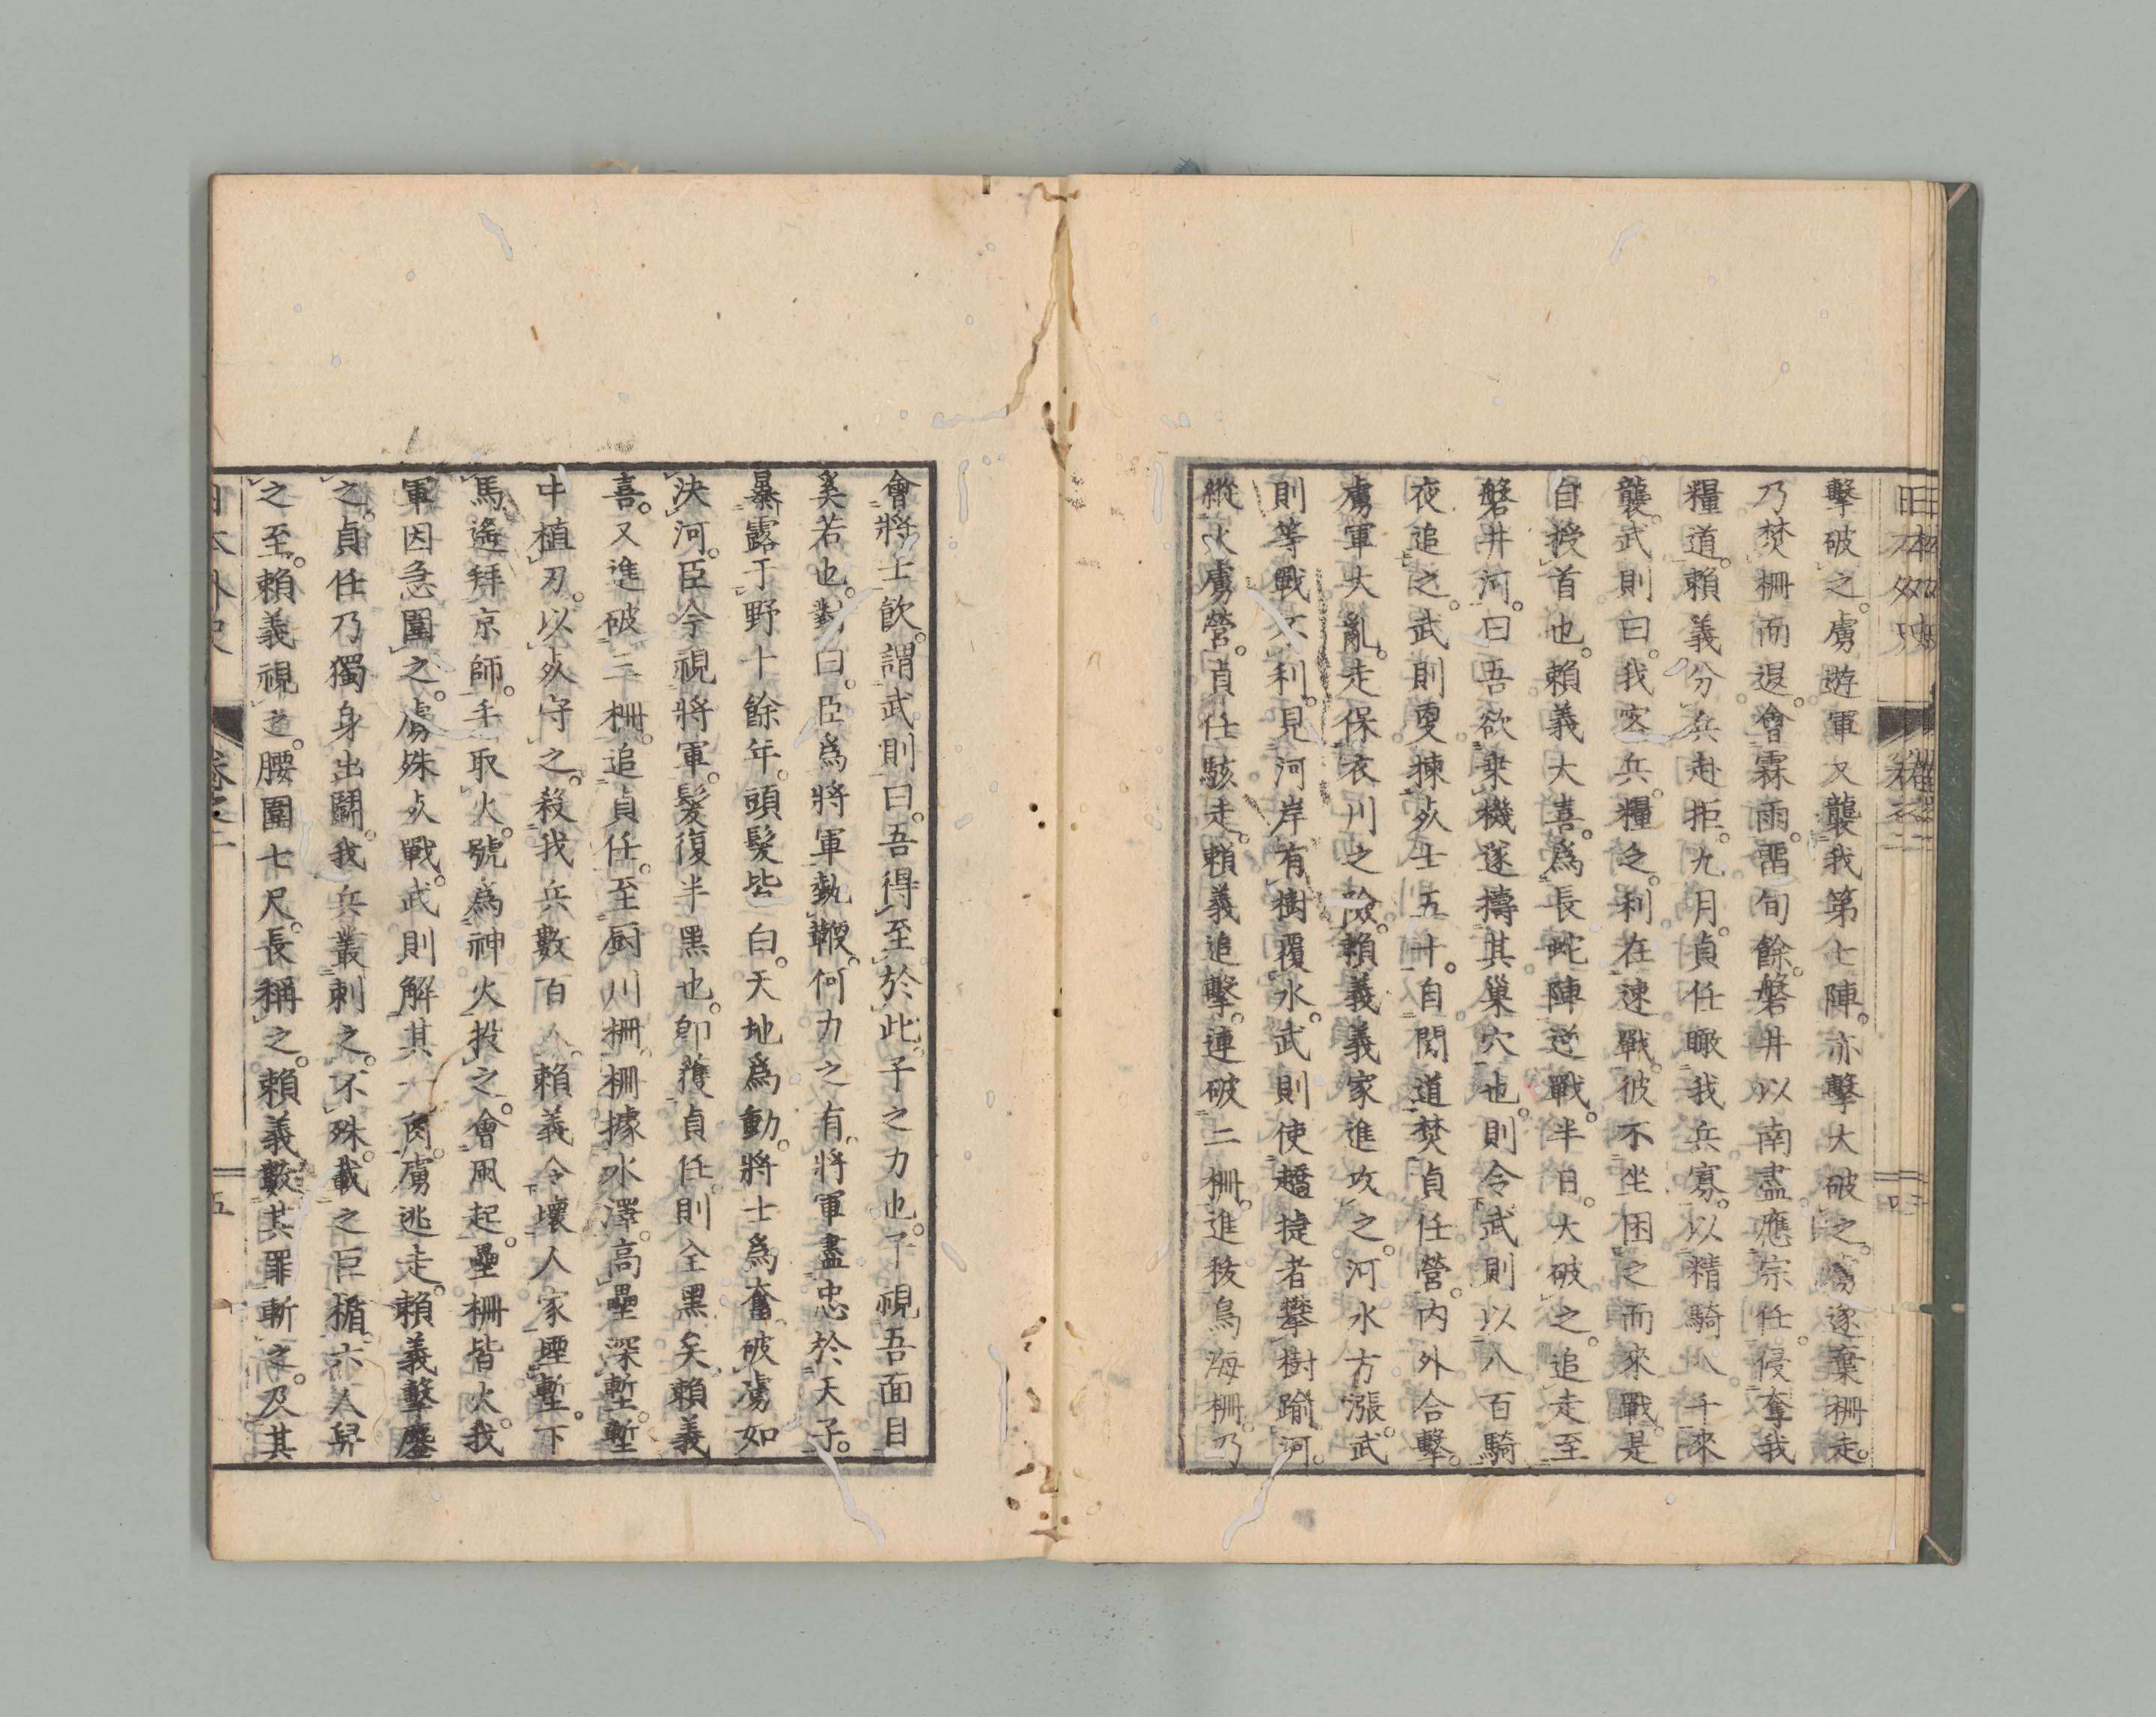 日本外史 卷之二
擊破之。虜遊軍又襲我第七陣。亦擊大破之。虜遂棄柵走。
乃焚柵而退。會霖雨。畱旬餘。磐井以南盡應宗任。侵奪我
糧道。賴義分兵赴拒。九月。貞任瞰我兵寡。以精騎八千來
襲。武則曰。我客兵。糧乏。利在速戰。彼不坐困之而來戰。是
自授首也。賴義大喜。爲長蛇陣逆戰。半日。大破之。追走至
磐井河。曰吾欲乗機遂擣其巢穴也。則令武則以八百騎
夜追之。武則更揀死士五十。自間道焚貞任營。内外合擊。
虜軍大亂。走保衣川之險。賴義義家進攻之。河水方漲。武
則等戰不利。見河岸有樹覆水。武則使趫捷者攀樹踰河。
縱火虜營。貞任駭走。賴義追擊。連破二柵。進拔鳥海柵。乃
會將士飲。謂武則曰。吾得至於此。子之力也。子視吾面目
奚若也。對曰。臣爲將軍執鞭。何力之有。將軍盡忠於天子。
暴露于野十餘年。頭髮皆白。天地爲動。將士爲奮。破虜如
決河。臣今視將軍。髮復半黑也。卽獲貞任。則全黑矣。賴義
喜。又進破三柵。追貞任。至厨川柵。柵據水澤。高壘深塹。塹
中植刃。以死守之。殺我兵數百人。賴義令壞人家堙塹。下
馬遙拜京師。手取火。號爲神火投之。會風起。壘柵皆火。我
軍因急圍之。虜殊死戰。武則解其一角。虜逃走。賴義擊鏖
之。貞任乃獨身出鬭。我兵叢刺之。不殊。載之巨楯。六人舁
之至。賴義視之。腰圍七尺。長稱之。賴義數其罪斬之。及其
日本外史 卷之二 五